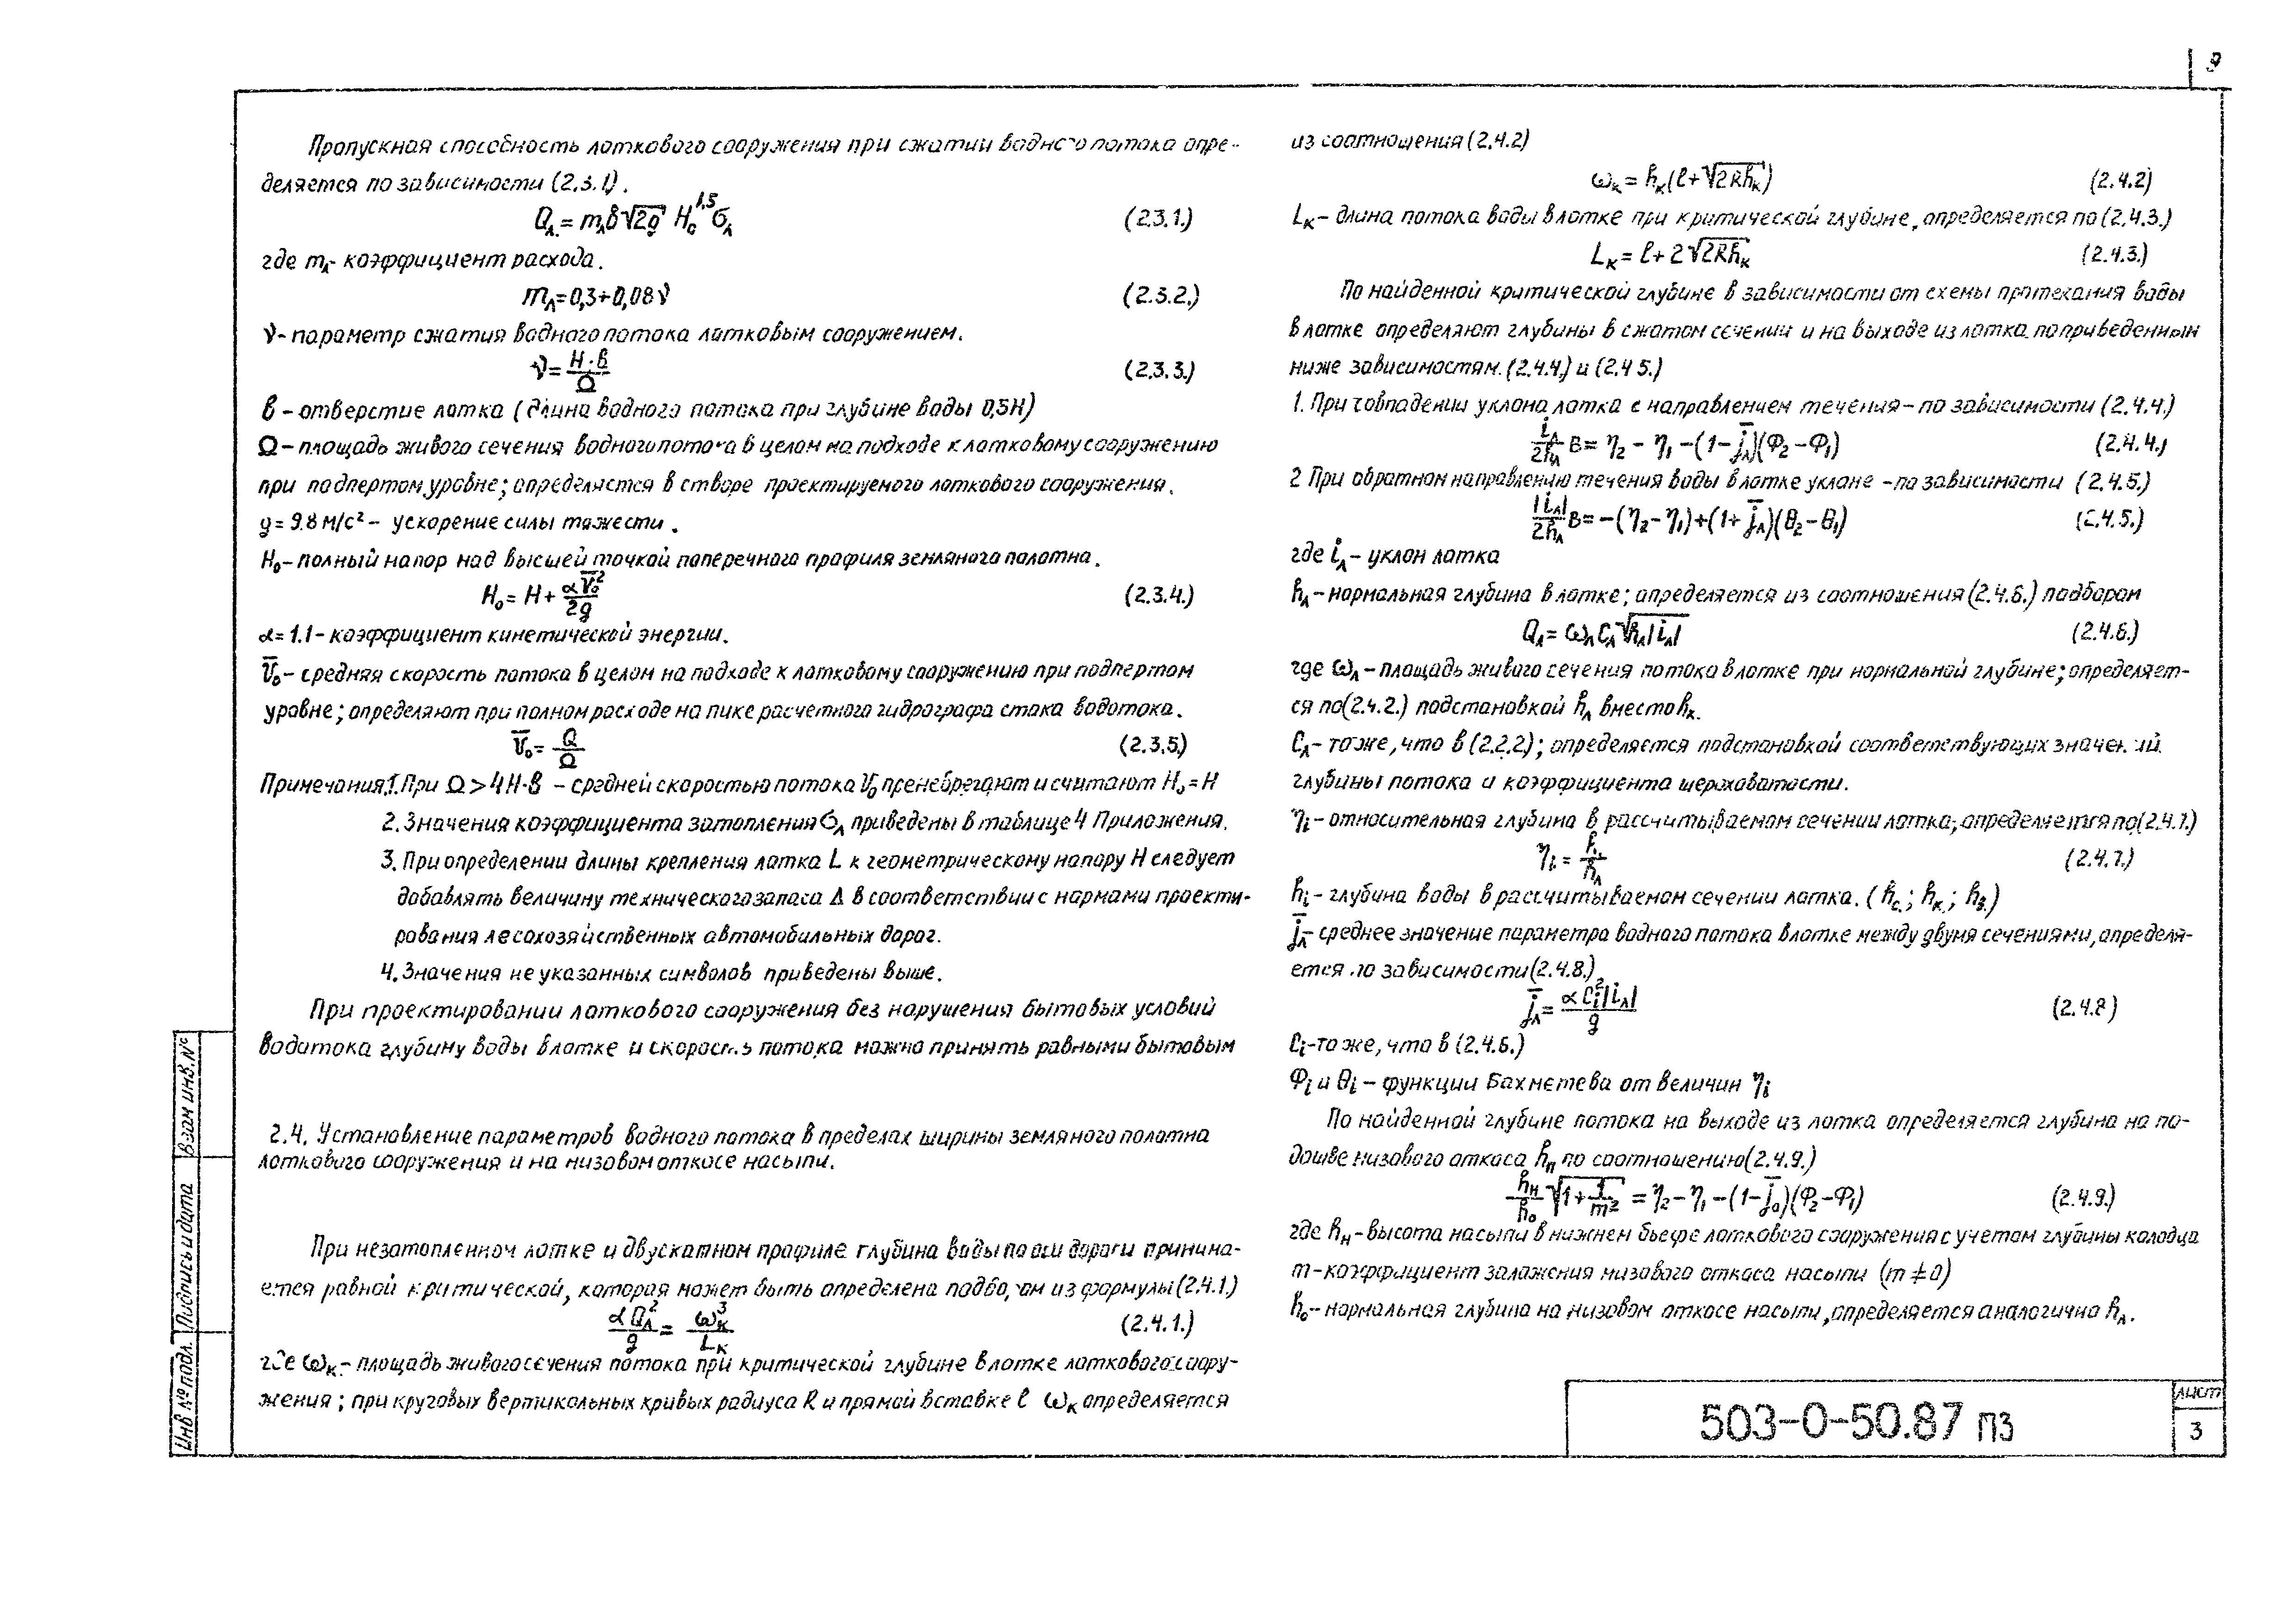 9
Пропускная способность лоткового сооружения при сжатии водного потока опре-
деляется по зависимости (2.3.1).
Qл = mл b √2g H₀^1,5 σл (2.3.1.)
где mл - коэффициент расхода.
mл = 0,3 + 0,08 ν (2.3.2.)
ν - параметр сжатия водного потока лотковым сооружением.
ν = H·b / Ω (2.3.3.)
b - отверстие лотка (длина водного потока при глубине воды 0,5H)
Ω - площадь живого сечения водного потока в целом на подходе к лотковому сооружению
при подпертом уровне; определяется в створе проектируемого лоткового сооружения.
g = 9.8 м/с² - ускорение силы тяжести.
H₀ - полный напор над высшей точкой поперечного профиля земляного полотна.
H₀ = H + αV̅₀² / 2g (2.3.4.)
α = 1.1 - коэффициент кинетической энергии.
V̅₀ - средняя скорость потока в целом на подходе к лотковому сооружению при подпертом
уровне; определяют при полном расходе на пике расчетного гидрографа стока водотока.
V̅₀ = Q / Ω (2.3.5.)
Примечания: 1. При Ω > 4H·b - средней скоростью потока V₀ пренебрегают и считают H₀ = H
2. Значения коэффициента затопления σл приведены в таблице 4 Приложения.
3. При определении длины крепления лотка L к геометрическому напору H следует
добавлять величину технического запаса Δ в соответствии с нормами проекти-
рования лесохозяйственных автомобильных дорог.
4. Значения не указанных символов приведены выше.
При проектировании лоткового сооружения без нарушения бытовых условий
водотока глубину воды в лотке и скорость потока можно принять равными бытовым
2.4. Установление параметров водного потока в пределах ширины земляного полотна
лоткового сооружения и на низовом откосе насыпи.
При незатопленном лотке и двускатном профиле глубина воды по оси дороги принима-
ется равной критической, которая может быть определена подбором из формулы (2.4.1)
αQл² / g = ωк³ / Lк (2.4.1.)
где ωк - площадь живого сечения потока при критической глубине в лотке лоткового соору-
жения; при круговых вертикальных кривых радиуса R и прямой вставке l ωк определяется
из соотношения (2.4.2)
ωк = hк(l + √2Rhк) (2.4.2)
Lк - длина потока воды в лотке при критической глубине, определяется по (2.4.3.)
Lк = l + 2√2Rhк (2.4.3.)
По найденной критической глубине в зависимости от схемы протекания воды
в лотке определяют глубины в сжатом сечении и на выходе из лотка по приведенным
ниже зависимостям. (2.4.4.) и (2.4.5.)
1. При совпадении уклона лотка с направлением течения - по зависимости (2.4.4.)
iл / 2hл B = η₂ - η₁ - (1 - j̅л)(Φ₂ - Φ₁) (2.4.4.)
2 При обратном направлению течения воды в лотке уклоне - по зависимости (2.4.5.)
|iл| / 2hл B = -(η₂ - η₁) + (1 + j̅л)(θ₂ - θ₁) (2.4.5.)
где iл - уклон лотка
hл - нормальная глубина в лотке; определяется из соотношения (2.4.6.) подбором
Qл = ωл Cл √hл|iл| (2.4.6.)
где ωл - площадь живого сечения потока в лотке при нормальной глубине; определяет-
ся по (2.4.2.) подстановкой hл вместо hк.
Cл - то же, что в (2.2.2); определяется подстановкой соответствующих значений
глубины потока и коэффициента шероховатости.
ηi - относительная глубина в рассчитываемом сечении лотка; определяется по (2.4.7.)
ηi = hi / hл (2.4.7.)
hi - глубина воды в рассчитываемом сечении лотка. (hс.; hк.; hв.)
j̅л - среднее значение параметра водного потока в лотке между двумя сечениями, определя-
ется по зависимости (2.4.8.)
j̅л = αCi²|iл| / g (2.4.8)
Ci - то же, что в (2.4.6.)
Φi и θi - функции Бахметева от величин ηi
По найденной глубине потока на выходе из лотка определяется глубина на по-
дошве низового откоса hп по соотношению (2.4.9.)
hн / h₀ √1 + 1/m² = η₂ - η₁ - (1 - j̅₀)(Φ₂ - Φ₁) (2.4.9.)
где hн - высота насыпи в нижнем бьефе лоткового сооружения с учетом глубины колодца
m - коэффициент заложения низового откоса насыпи (m ≠ 0)
h₀ - нормальная глубина на низовом откосе насыпи, определяется аналогично hл.
Взам инв. №
Подпись и дата
Инв № подл.
503-0-50.87 ПЗ
лист
3